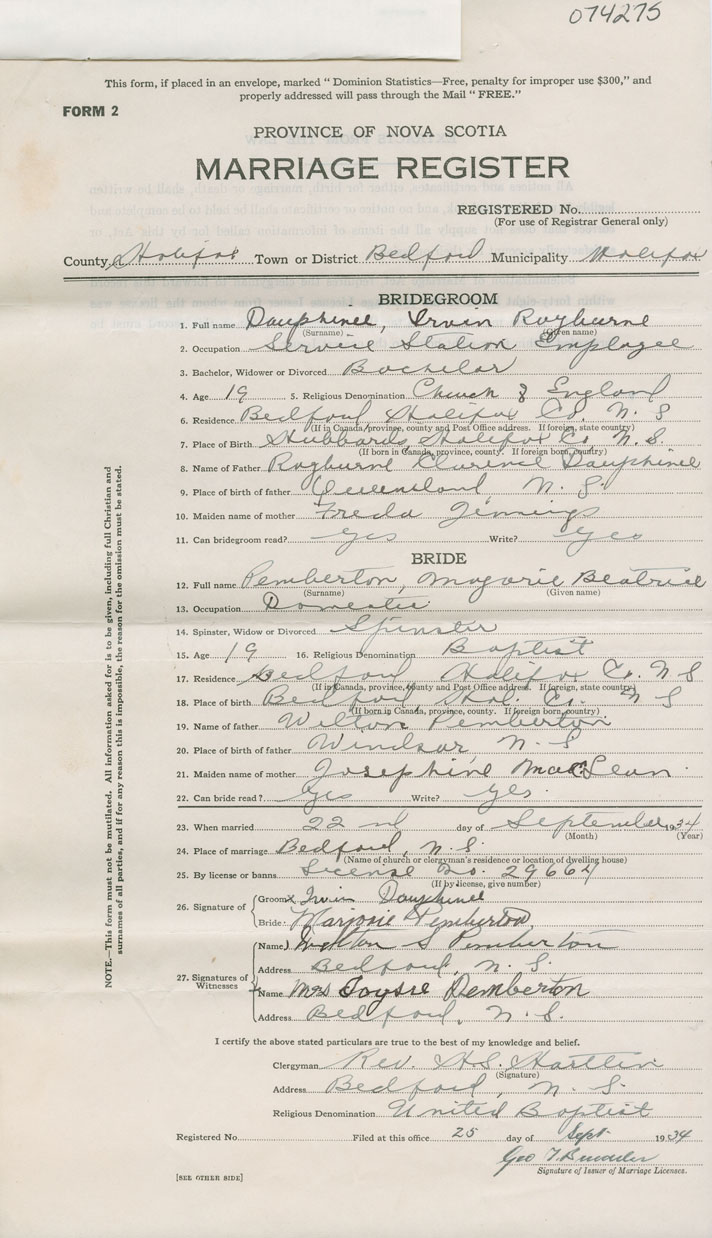 074275
This form, if placed in an envelope, marked "Dominion Statistics—Free, penalty for improper use $300," and
properly addressed will pass through the Mail "FREE."
FORM 2
PROVINCE OF NOVA SCOTIA
MARRIAGE REGISTER
REGISTERED No.
(For use of Registrar General only)
County Halifax Town or District Bedford Municipality Halifax
BRIDEGROOM
1. Full name Dauphinee, Irvin Rayburne
(Surname) (Given name)
2. Occupation Service Station Employee
3. Bachelor, Widower or Divorced Bachelor
4. Age 19 5. Religious Denomination Church of England
6. Residence Bedford Halifax Co. N. S
(If in Canada, province, county and Post Office address. If foreign, state country)
7. Place of Birth Hubbards, Halifax Co, N. S.
(If born in Canada, province, county. If foreign born, country)
8. Name of Father Rayburne Clarence Dauphinee
9. Place of birth of father Queensland, N. S.
10. Maiden name of mother Freda Jennings
11. Can bridegroom read? Yes Write? Yes
BRIDE
12. Full name Pemberton, Marjorie Beatrice
(Surname) (Given name)
13. Occupation Domestic
14. Spinster, Widow or Divorced Spinster
15. Age 19 16. Religious Denomination Baptist
17. Residence Bedford Halifax Co. N S
(If in Canada, province, county and Post Office address. If foreign, state country)
18. Place of birth Bedford Hal. Co. N S
(If born in Canada, province, county. If foreign born, country)
19. Name of father Wilton Pemberton
20. Place of birth of father Windsor, N. S
21. Maiden name of mother Josephine MacLean
22. Can bride read? Yes Write? Yes.
23. When married 22nd day of September 1934
(Month) (Year)
24. Place of marriage Bedford, N. S.
(Name of church or clergyman's residence or location of dwelling house)
25. By license or banns License No. 29664
(If by license, give number)
26. Signature of
Groom x Irvin Dauphinee
Bride Marjorie Pemberton
27. Signatures of Witnesses
Name S Pemberton
Address Bedford, N. S.
Name Mrs Pemberton
Address Bedford, N. S.
I certify the above stated particulars are true to the best of my knowledge and belief.
Clergyman Rev. H. S. Hartlin
(Signature)
Address Bedford, N. S.
Religious Denomination United Baptist
Registered No. Filed at this office 25 day of Sept 1934
Geo T.
Signature of Issuer of Marriage Licenses.
[SEE OTHER SIDE]
NOTE.—This form must not be mutilated. All information asked for is to be given, including full Christian and
surnames of all parties, and if for any reason this is impossible, the reason for the omission must be stated.